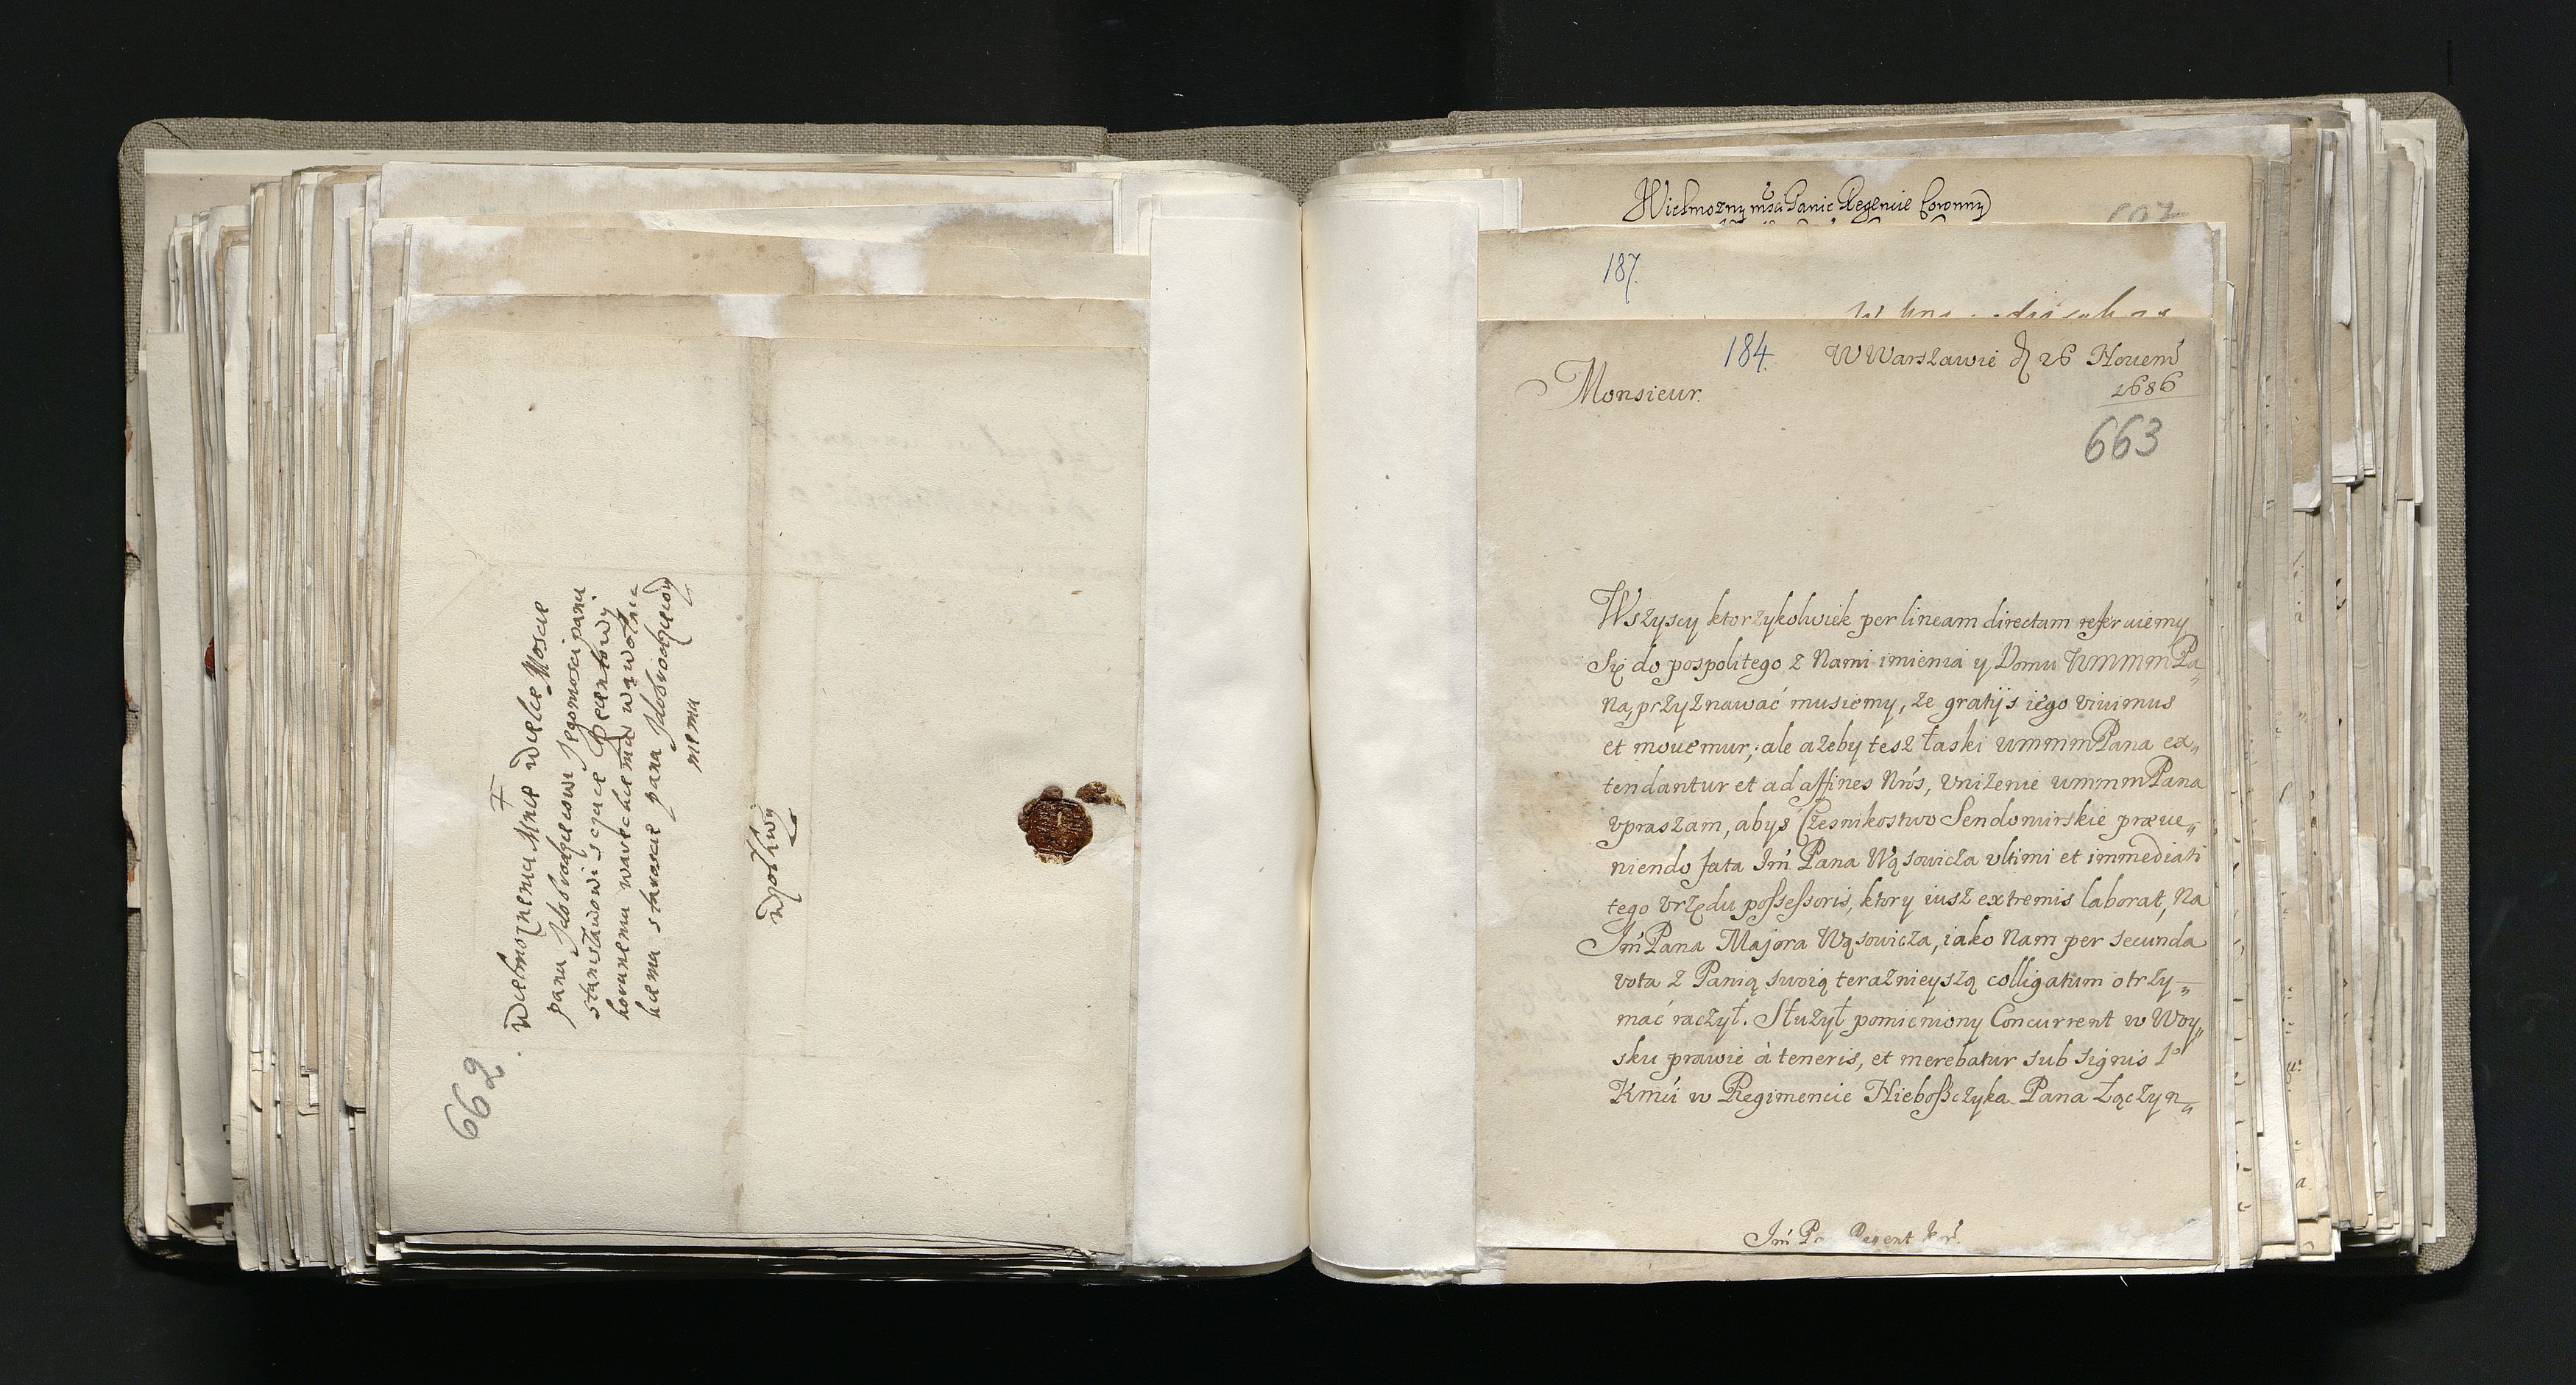 662
Wielmoznemu Mnie Wielce Mosciе
panu Idobrodzieiowi Jegomosci panu
stanisławowi szczuce Regentowi
koronnemu wareckiemu wąwolnic
kiemu staroscie panu Idobrodzieiowi
memu
Wyołkwy
Wielmozny msci Panie Regencie Coronny
187.
184.
W Warszawie d 26 Nouem
1686
Monsieur.
663
Wszyscy ktorzykolwiek per lineam directam referuiemy
Się do pospolitego z Nami imienia y Domu WmmmPa„
na, przyznawać musiemy, ze gratijs iego viuimus
et mouemur; ale azeby tesz łaski ummmPana ex„
tendantur et ad affines Nrs, vnizenie ummmPana
vpraszam, abys Czesnikostwo Sendomirskie præue„
niendo fata Im Pana Wąsowicza vltimi et immediati
tego vrzędu possessoris, ktory iusz extremis laborat, na
Im Pana Majora Wąsowicza, iako nam per secunda
vota z Panią swoią teraznieyszą colligatum otrzy„
mać raczył. Służył pomieniony Concurrent w Woy„
sku prawie à teneris, et merebatur sub signis 1º
Kmći w Regimencie Niebosсzyka Pana Łączyn„
Im Pa Regent Kor.